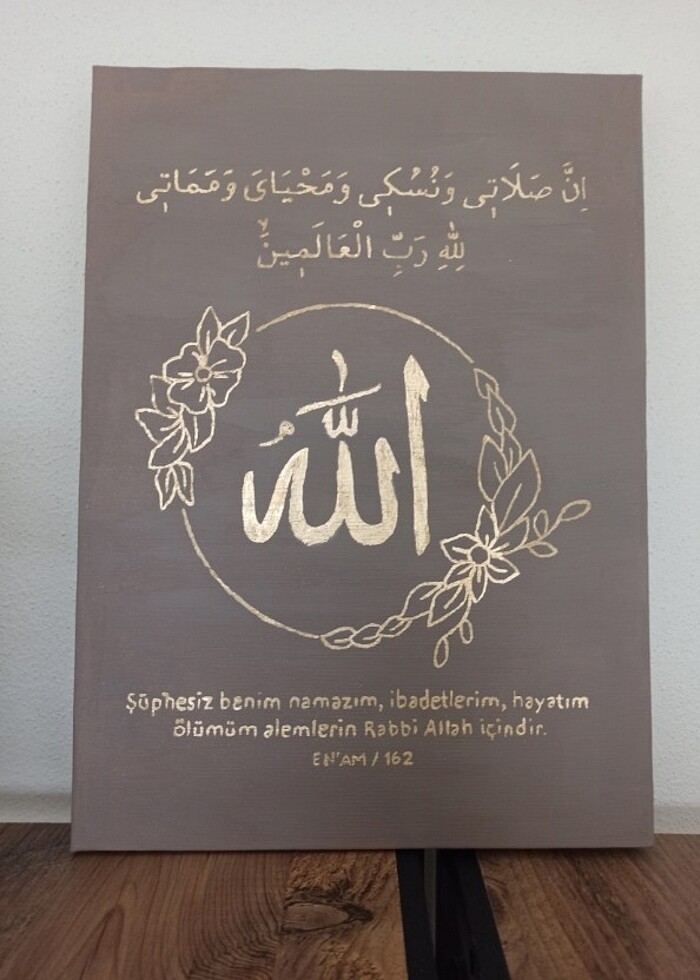 اِنَّ صَلَاتٖى وَنُسُكٖى وَمَحْيَاىَ وَمَمَاتٖى
لِلّٰهِ رَبِّ الْعَالَمٖينَۙ
اللّٰهُ
Şüphesiz benim namazım, ibadetlerim, hayatım
ölümüm alemlerin Rabbi Allah içindir.
EN'AM / 162